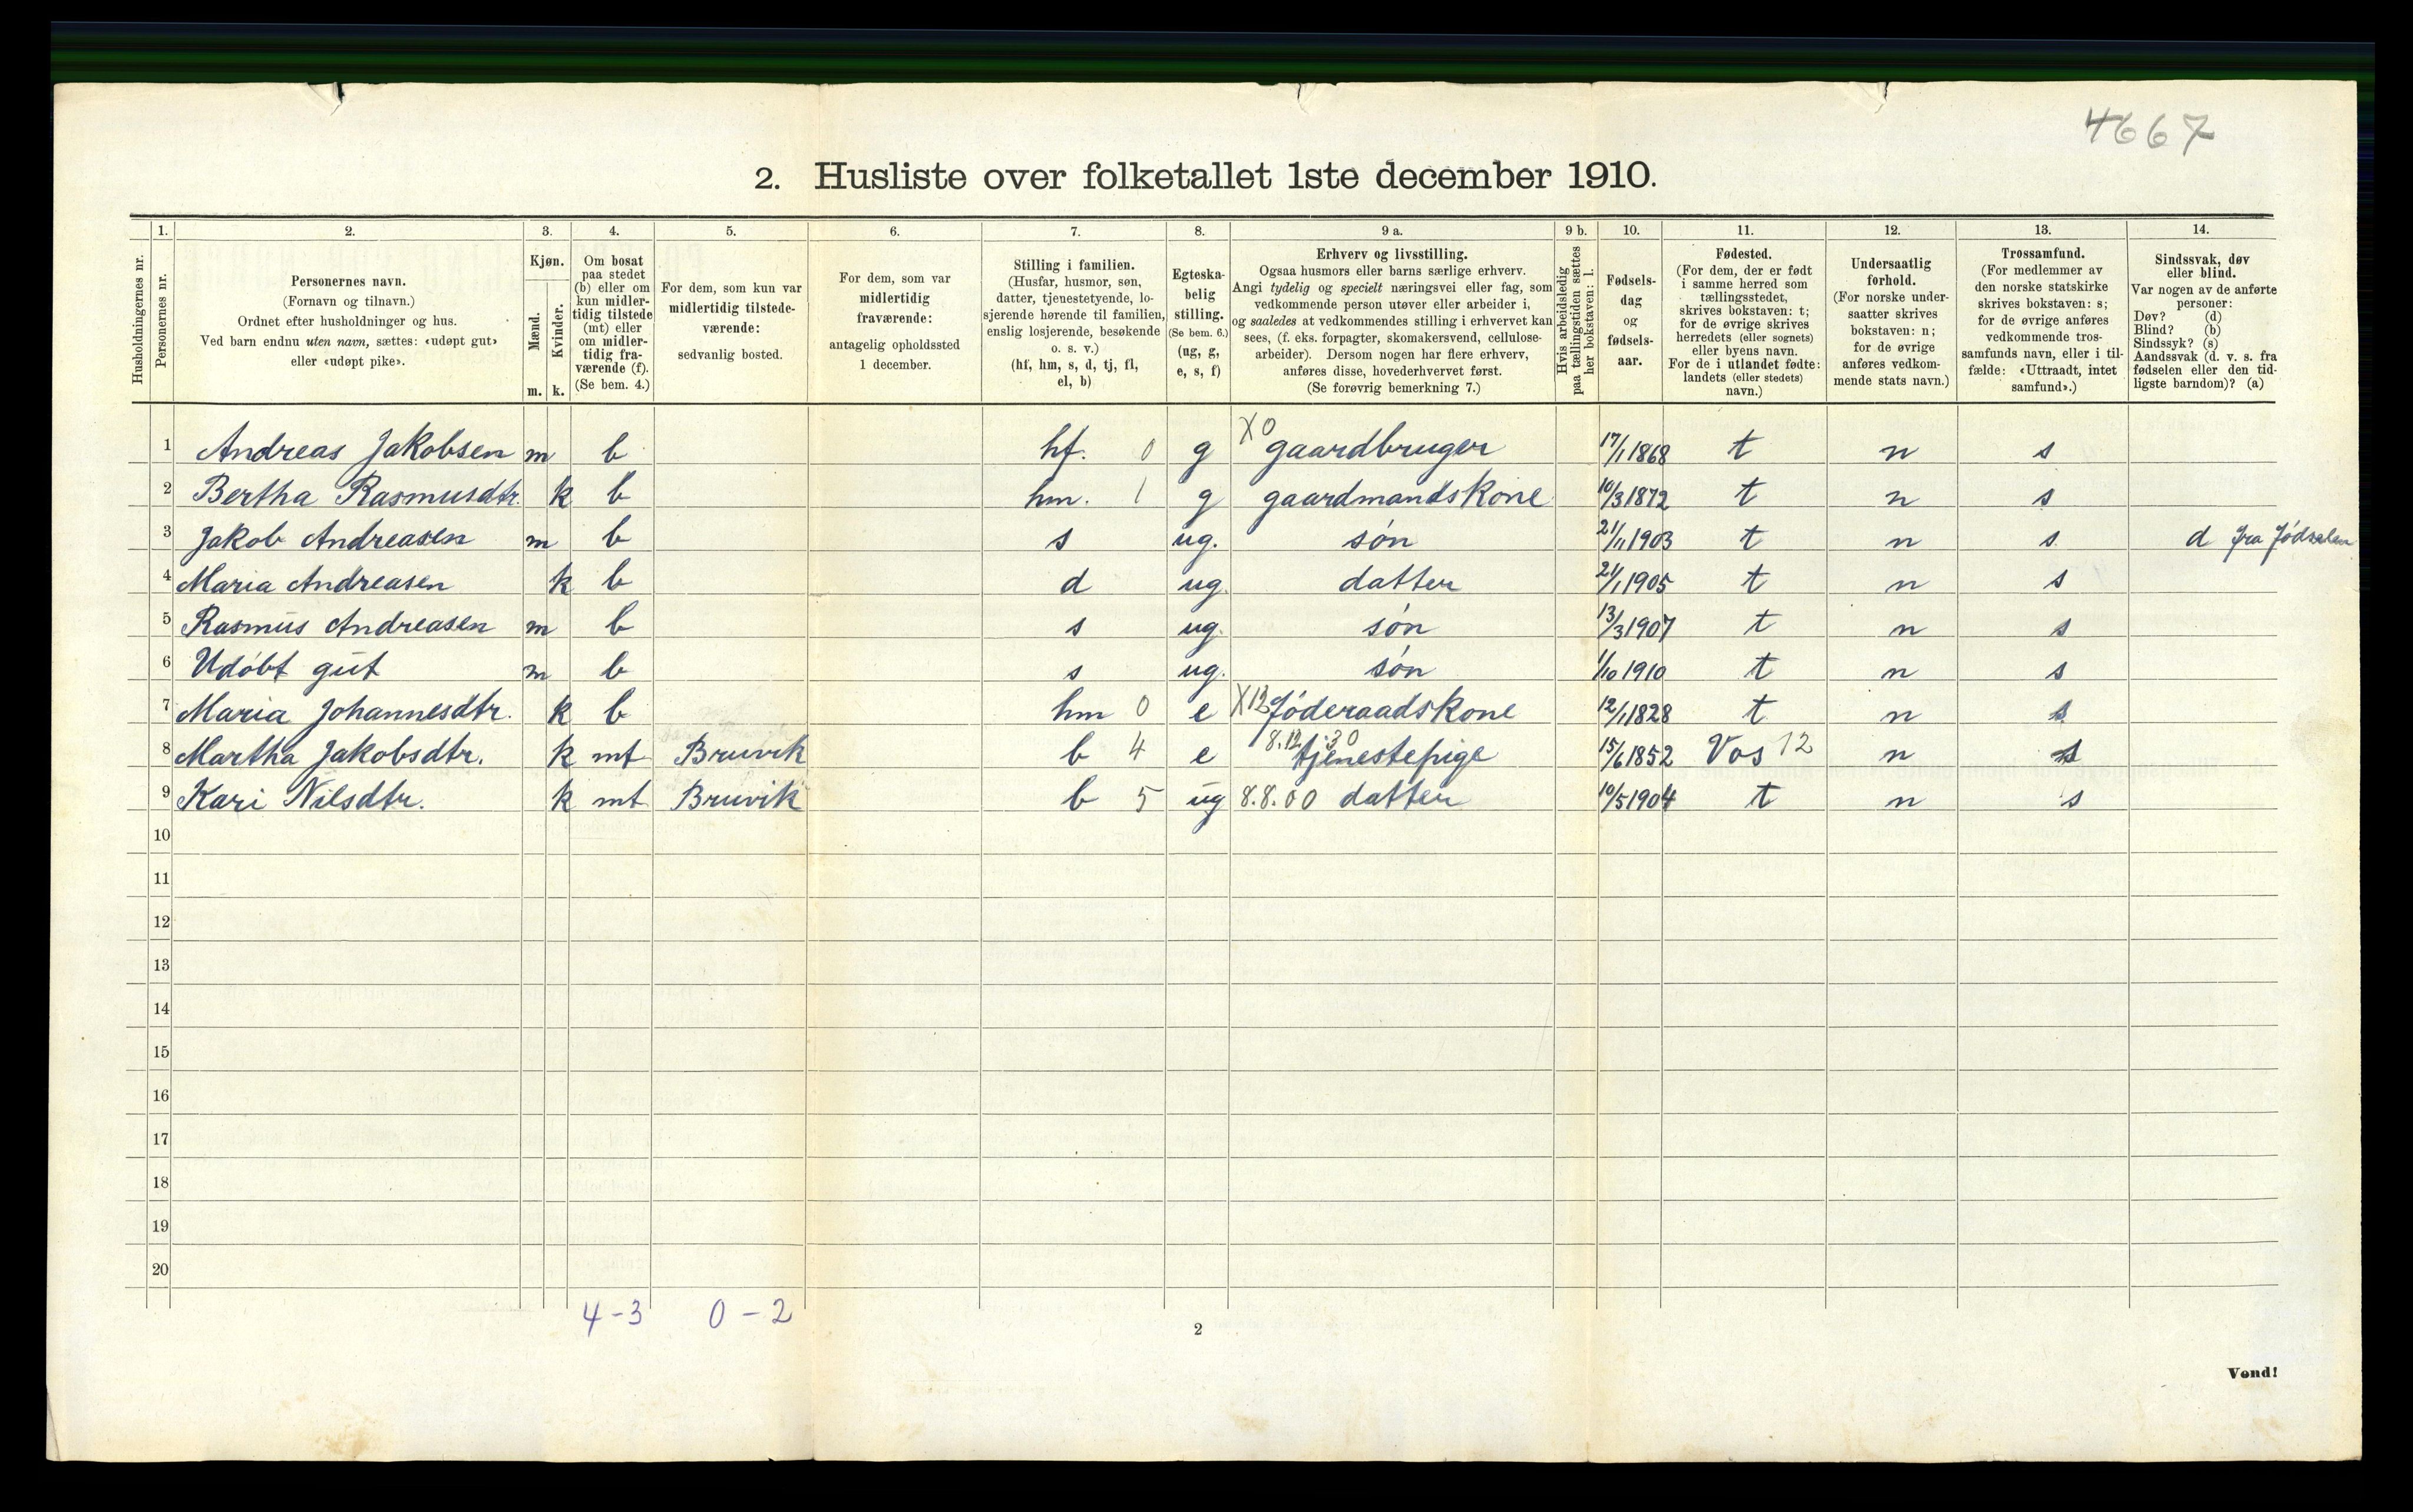 4667
2. Husliste over folketallet 1ste december 1910.
1. 2. 3. 4. 5. 6. 7. 8. 9 a. 9 b. 10. 11. 12. 13. 14.
Husholdningernes nr.
Personernes nr.
Personernes navn.
(Fornavn og tilnavn.)
Ordnet efter husholdninger og hus.
Ved barn endnu uten navn, sættes: «udøpt gut»
eller «udøpt pike».
Kjøn.
Mænd.
Kvinder.
m. k.
Om bosat
paa stedet
(b) eller om
kun midler-
tidig tilstede
(mt) eller
om midler-
tidig fra-
værende (f).
(Se bem. 4.)
For dem, som kun var
midlertidig tilstede-
værende:
sedvanlig bosted.
For dem, som var
midlertidig
fraværende:
antagelig opholdssted
1 december.
Stilling i familien.
(Husfar, husmor, søn,
datter, tjenestetyende, lo-
sjerende hørende til familien,
enslig losjerende, besøkende
o. s. v.)
(hf, hm, s, d, tj, fl,
el, b)
Egteska-
belig
stilling.
(Se bem. 6.)
(ug, g,
e, s, f)
Erhverv og livsstilling.
Ogsaa husmors eller barns særlige erhverv.
Angi tydelig og specielt næringsvei eller fag, som
vedkommende person utøver eller arbeider i,
og saaledes at vedkommendes stilling i erhvervet kan
sees, (f. eks. forpagter, skomakersvend, cellulose-
arbeider). Dersom nogen har flere erhverv,
anføres disse, hovederhvervet først.
(Se forøvrig bemerkning 7.)
Hvis arbeidsledig
paa tællingstiden sættes
her bokstaven: l.
Fødsels-
dag
og
fødsels-
aar.
Fødested.
(For dem, der er født
i samme herred som
tællingsstedet,
skrives bokstaven: t;
for de øvrige skrives
herredets (eller sognets)
eller byens navn.
For de i utlandet fødte:
landets (eller stedets)
navn.)
Undersaatlig
forhold.
(For norske under-
saatter skrives
bokstaven: n;
for de øvrige
anføres vedkom-
mende stats navn.)
Trossamfund.
(For medlemmer av
den norske statskirke
skrives bokstaven: s;
for de øvrige anføres
vedkommende tros-
samfunds navn, eller i til-
fælde: «Uttraadt, intet
samfund».)
Sindssvak, døv
eller blind.
Var nogen av de anførte
personer:
Døv? (d)
Blind? (b)
Sindssyk? (s)
Aandssvak (d. v. s. fra
fødselen eller den tid-
ligste barndom)? (a)
1 Andreas Jakobsen m b hf. 0 g X0 gaardbruger 17/1 1868 t n s
2 Bertha Rasmusdtr. k b hm. 1 g gaardmandskone 10/3 1872 t n s
3 Jakob Andreasen m b s ug. søn 21/11 1903 t n s d fra fødselen
4 Maria Andreasen k b d ug. datter 21/1 1905 t n s
5 Rasmus Andreasen m b s ug. søn 13/3 1907 t n s
6 Udøbt gut m b s ug. søn 1/10 1910 t n s
7 Maria Johannesdtr. k b hm 0 e X12 føderaadskone 12/1 1828 t n s
8 Martha Jakobsdtr. k mt Bruvik b 4 e 8.12.30 tjenestepige 15/6 1852 Vos 12 n s
9 Kari Nilsdtr. k mt Bruvik b 5 ug 8.8.00 datter 10/5 1904 t n s
10
11
12
13
14
15
16
17
18
19
20
4-3 0-2
2
Vend!